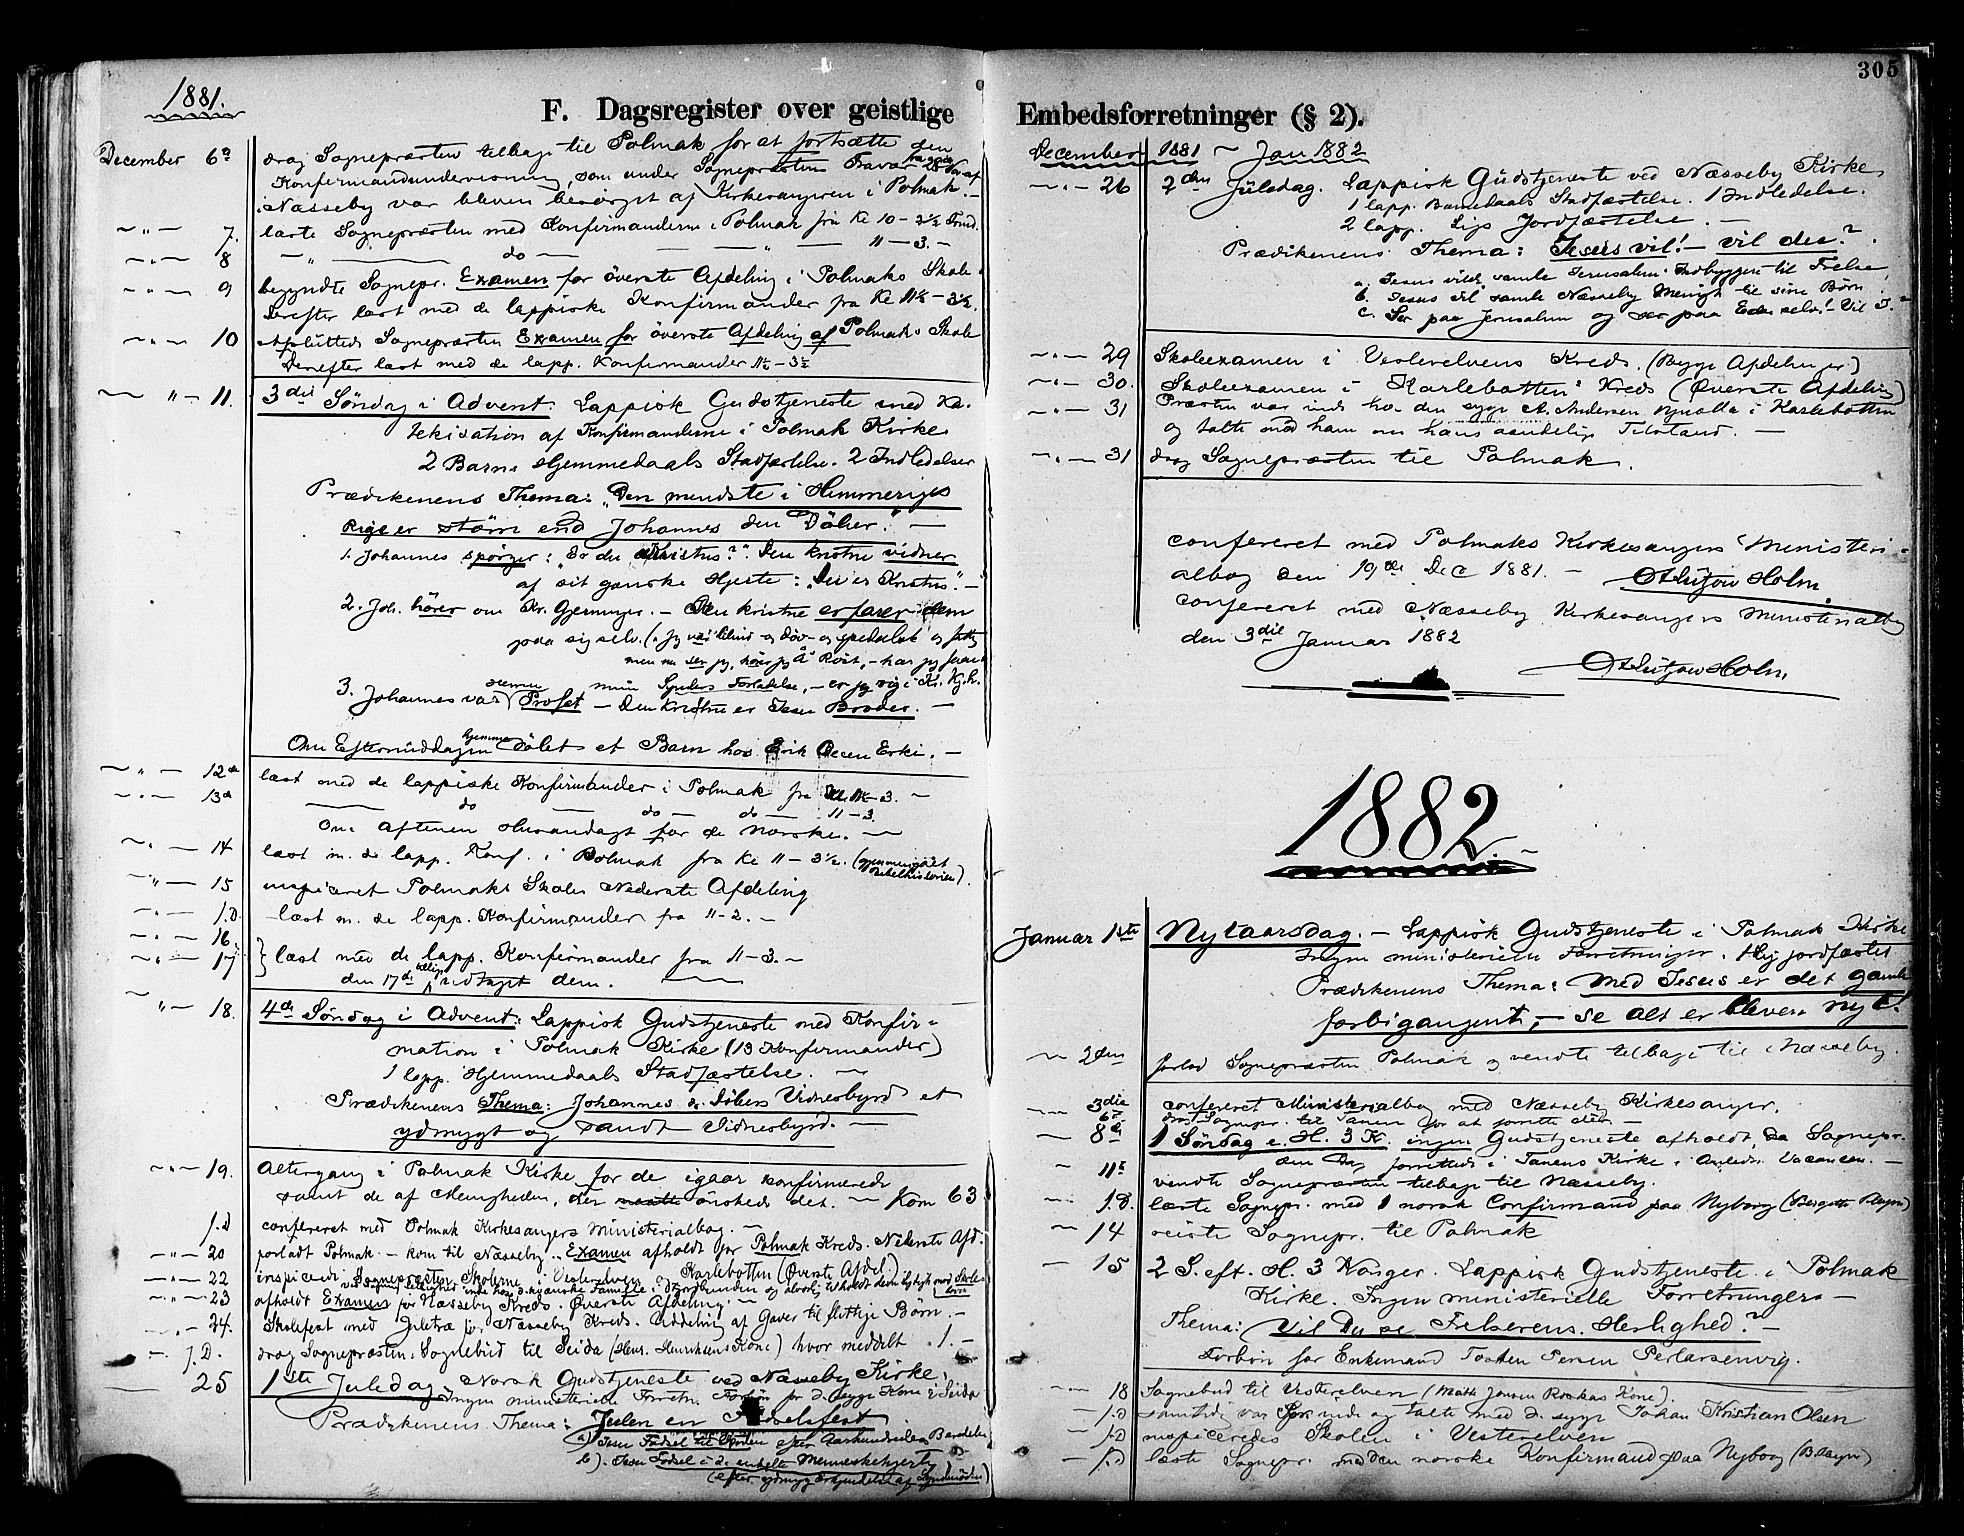 1881.
F. Dagsregister over geistlige
December 6te drog Sognepræsten tilbage til Polmak for at fortsætte den
Konfirmandundervisning, som under Sognepræstens Fravær
i Næsseby var bleven besørget af Kirkesangeren i Polmak.
7. læste Sognepræsten med Konfirmanderne i Polmak fra Kl 10 - 2½
8 do 11-3.-
9 begyndte Sognepr. Examen for överste Afdeling i Polmaks Skole.
Derefter læst med de lappiske Konfirmander fra Kl 11½ - 3½.
10 Afsluttede Sognepræsten Examen for överste Afdeling af Polmaks Skole
Derefter læst med de lapp. Konfirmander
11. 3die Søndag i Advent. Lappisk Gudstjeneste med Ka-
tekisation af Konfirmanderne i Polmak Kirke
2 Barns Hjemmedaabs Stadfæstelse. 2 Indledelser
Prædikenens Thema: "Den mindste i Himmeriges
Rige er större end Johannes den Döber." -
1. Johannes spörger: "Er du Kristus?" Den kristne vidner
af sit ganske Hjerte: "Du er Kristus". -
2. Joh. hörer om Kr. Gjerninger. - Den kristne erfarer dem
paa sig selv. (Jeg var blind og döv og spedalsk og
men nu ser jeg, hörer jeg Röst, - har jeg faaet
min Synders Forladelse, - er jeg rig i Kr.
3. Johannes var Profet - Den kristne er Jesu Broder. -
Om Eftermiddagen hjemmedöbt et Barn hos Erik Erki. -
12te læst med de lappiske Konfirmander i Polmak fra Kl. -3. -
13de do do do 11-3.
Om Aftenen Husandagt for de Norske. -
14 læst m. de lapp. Konf. i Polmak fra Kl 11-3½. (gjennemgaaet Bibelhistorien).
15 inspiceret Polmaks Skoles Nederste Afdeling
s.D. læst m. de lapp. Konfirmander fra 11-2. -
16.
17 } læst med de lapp. Konfirmander fra 11-3. -
den 17de dem.
18. 4de Søndag i Advent: Lappisk Gudstjeneste med Konfir-
mation i Polmak Kirke (13 Konfirmander)
1 lapp. Hjemmedaabs Stadfæstelse. -
Prædikenens Thema: Johannes d. Döbers Vidnesbyrd et
ydmygt og sandt Vidnesbyrd. -
19. Altergang i Polmak Kirke for de igaar konfirmerede
samt de af Menigheden, der önskede det. - Kom 63
s.D conferéret med Polmak Kirkesangers Ministerialbog. -
20 forladt Polmak - kom til Næsseby. - Examen afholdt for Polmak Kreds. Nederste Afd.
22 inspicerede Sognepræsten Skolerne i Vesterelven og Karlebotten (Överste Afdel)
23 afholdt Examen for Næsseby Kreds. Överste Afdeling. -
24. Skolefest med Juletræ for Næsseby Kreds. Uddeling af Gaver til flittige Börn. -
s.D. drog Sognepræsten i Sognebud til Seida (Henr. Henriksens Kone) hvor meddelt
25 1ste Juledag. Norsk Gudstjeneste ved Næsseby Kirke.
Ingen ministerielle Forretn. Forbön for d. syge Kone i Seida
Prædikenens Thema: Julen en Födselsfest
a) Jesu Födsel til Jorden efter Aarhundreders
b). Jesu Födsel i de enkelte Menneskehjerter
(efter ydmyg Erkjendelse af Syndenöden)
305
Embedsforretninger (§ 2).
December 1881 - Jan 1882
26 2den Juledag. Lappisk Gudstjeneste ved Næsseby Kirke
1 lapp. Barnedaabs Stadfæstelse. 1 Indledelse.
2 lapp. Ligs Jordfæstelse. -
Prædikenens Thema: Jesus vil! - vil du?
a. Jesus vilde samle Jerusalems Indbyggere til Frelse
b. Jesus vil samle Næsseby Menigh. til sine Börn
c. Ser paa Jerusalem og ser paa Eder selv! - Vil I?
29 Skoleexamen i Vesterelvens Kreds. (Begge Afdelinger)
30. Skoleexamen i Karlebotten Kreds (Överste Afdeling)
31 Præsten var inde hos den syge A. Andersen i Karlebotten
og talte med ham om hans aandelige Tilstand. -
31 drog Sognepræsten til Polmak.
confereret med Polmaks Kirkesangers Ministeri-
albog den 19de Dec 1881. - Lützow Holm.
confereret med Næsseby Kirkesangers Ministerialbog
den 3die Januar 1882
Lützow Holm.
1882.
Januar 1ste Nytaarsdag. - Lappisk Gudstjeneste i Polmak Kirke
Ingen ministerielle Forretninger. 1 Lig jordfæstet
Prædikenens Thema: Med Jesus er det gamle
forbigangent, - se alt er bleven nyt!
2den forlod Sognepræsten Polmak og vendte tilbage til Næsseby.
3die confereret Ministerialbog med Næsseby Kirkesanger.
6te drog Sognepr. til Tanen for at forrette der -
8de 1 Söndag e. H. 3 K. ingen Gudstjeneste afholdt, da Sognepr.
den Dag forrettede i Tanens Kirke i Anledn. Vacancen. -
11te vendte Sognepræsten tilbage til Næsseby.
s.D. læste Sognepr. med 1 norsk Confirmand paa Nyborg
14 reiste Sognepr. til Polmak
15 2 S. eft. H. 3 Konger. Lappisk Gudstjeneste i Polmak
Kirke. Ingen ministerielle Forretninger -
Thema: Vil Du se Frelserens Herlighed? -
Forbön for Enkemand Tosten Persen
18 Sognebud til Vesterelven
s.D samtidig var Spr. inde og talte med d. syge Johan Kristian Olsen
s.D inspiceredes Skolen i Vesterelven
s.D læste Sognepr. med den norske Konfirmand paa Nyborg